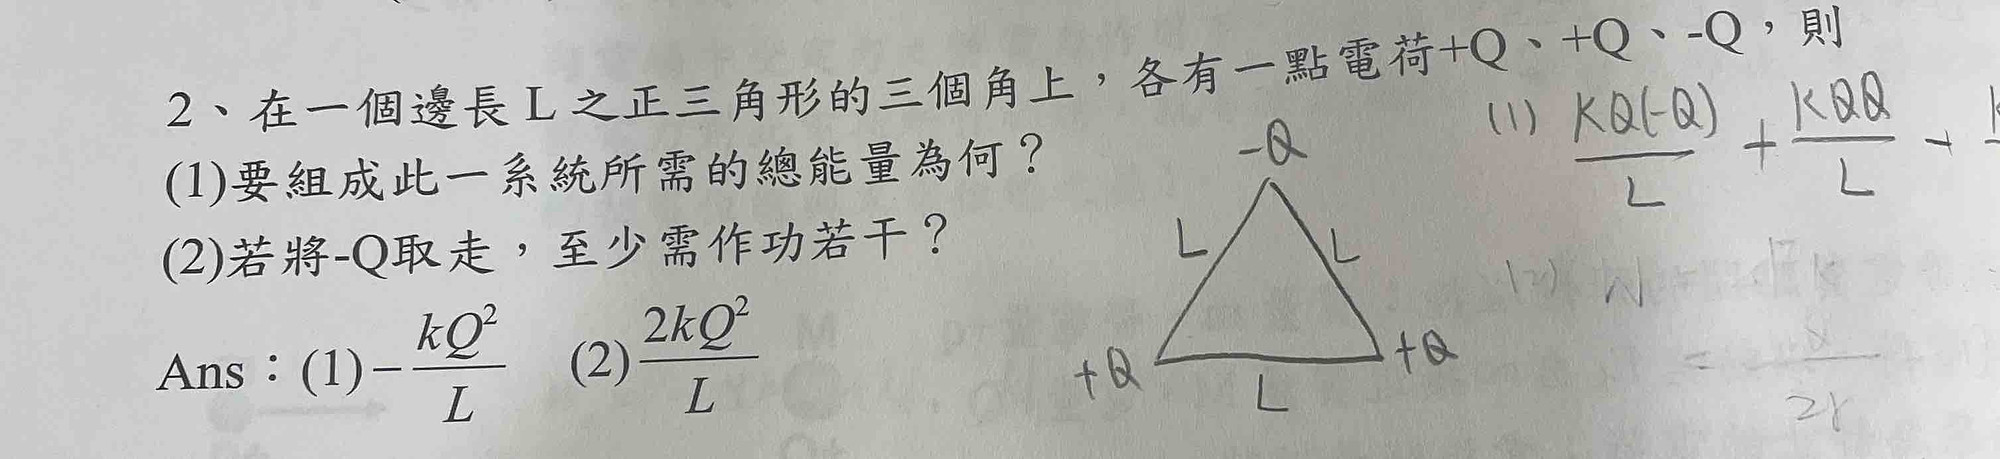 2、在一個邊長 L 之正三角形的三個角上，各有一點電荷+Q、+Q、-Q，則
(1)要組成此一系統所需的總能量為何？
(2)若將-Q取走，至少需作功若干？
Ans：(1) -kQ²/L (2) 2kQ²/L
-Q
L L
+Q +Q
L
(1) KQ(-Q)/L + KQQ/L +